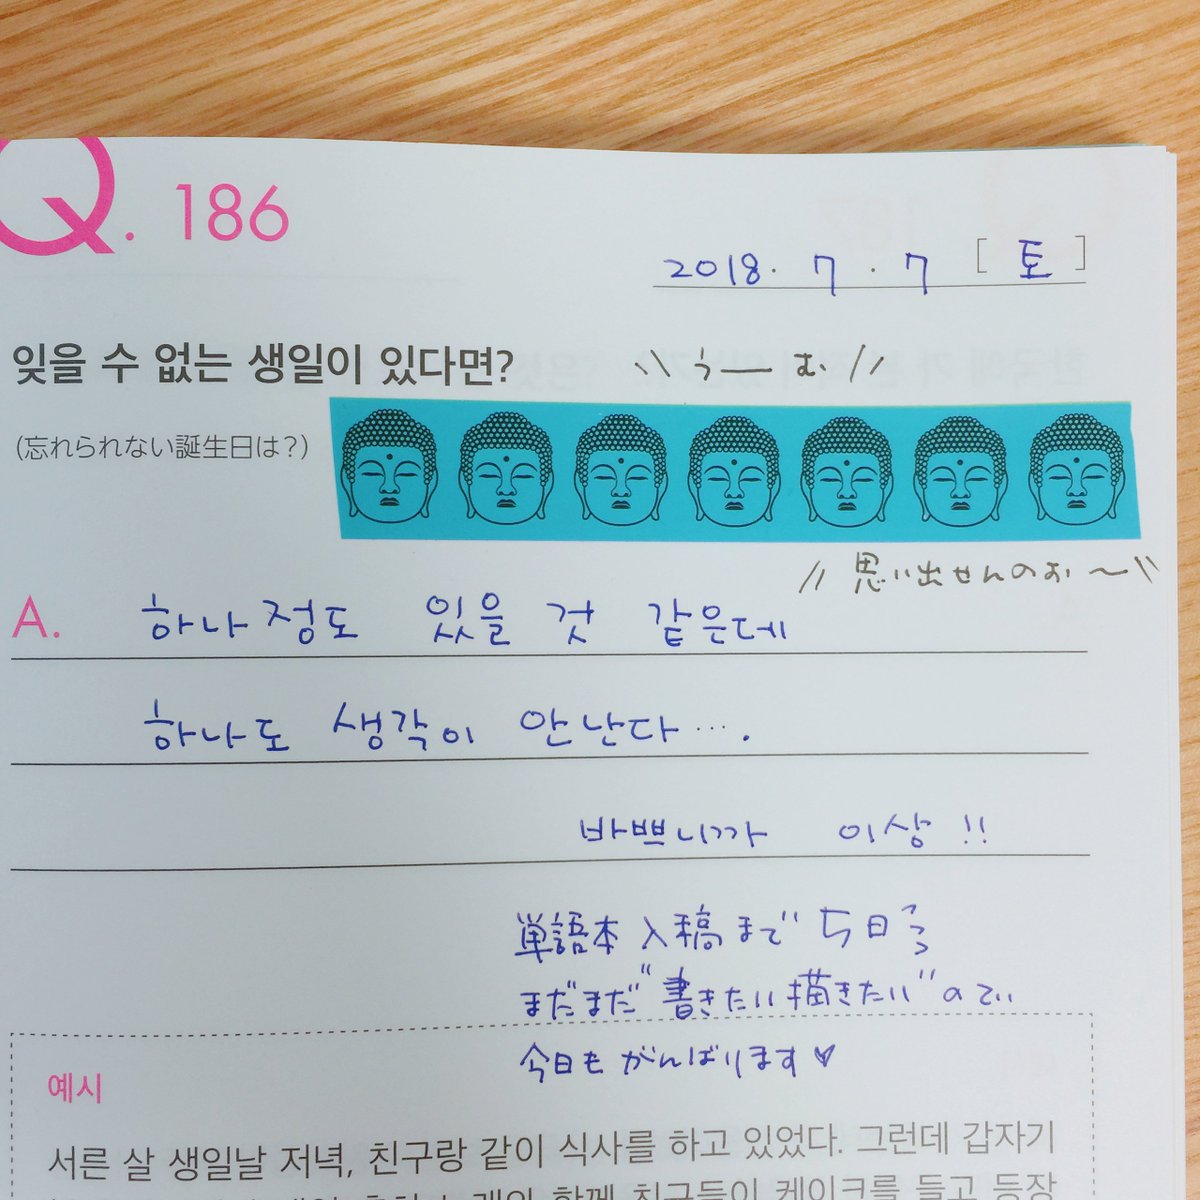 Q. 186
2018. 7. 7 [토]
잊을 수 없는 생일이 있다면?
\\ うーむ //
(忘れられない誕生日は?)
// 思い出せんのぉ〜 \\
A. 하나정도 있을 것 같은데
하나도 생각이 안난다….
바쁘니까 이상!!
単語本入稿まで5日
まだまだ"書きたい描きたい"ので
今日もがんばります♥
예시
서른 살 생일날 저녁, 친구랑 같이 식사를 하고 있었다. 그런데 갑자기
함께 친구들이 케이크를 들고 등장